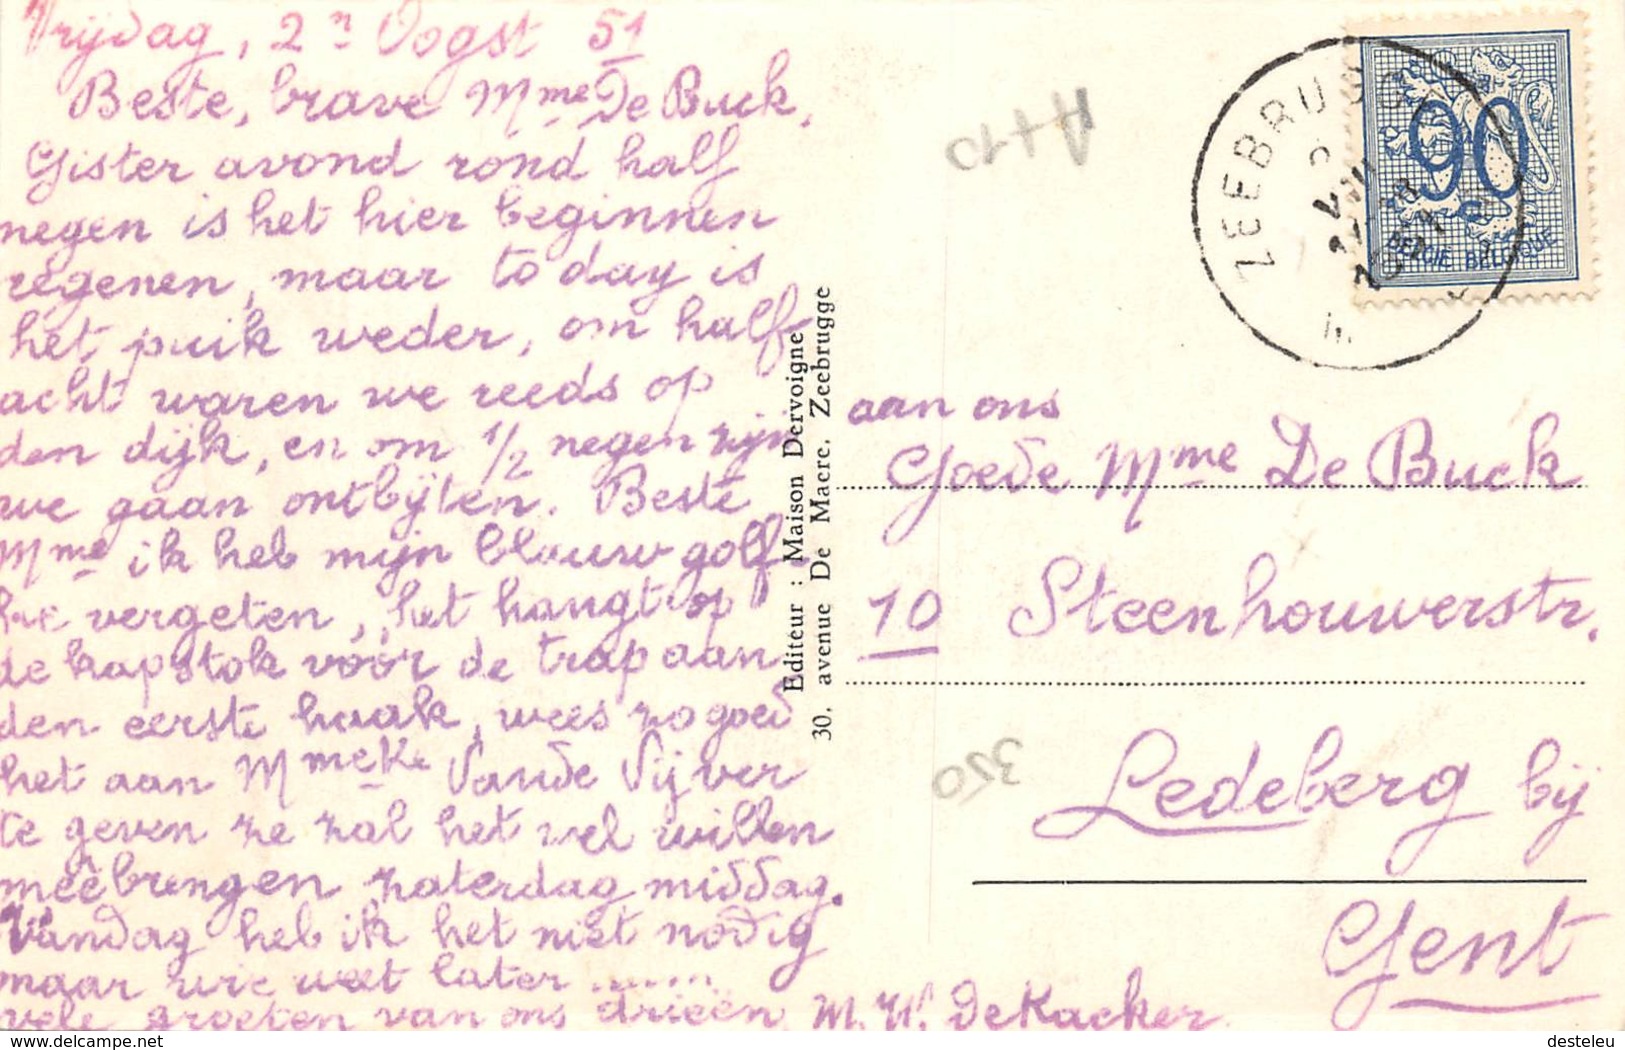 Vrijdag, 2n Oogst 51
Beste, brave Mme De Buck,
Gister avond rond half
negen is het hier beginnen
regenen, maar to day is
het puik weder, om half
acht waren we reeds op
den dijk, en om 1/2 negen zijn
we gaan ontbijten. Beste
Mme ik heb mijn blouw golf
vergeten, het hangt op
de kapstok voor de trap aan
den eerste haak, wees zo goed
het aan Mmeke Vande Vijver
te geven ze zal het wel willen
meêbrengen zaterdag middag.
Vandag heb ik het niet nodig
maar wie weet later ......
vele groeten van ons drieën M. W. DeKacker
Editeur : Maison Dervoigne
30. avenue De Maere. Zeebrugge
A+10
ZEEBRUGGE
90
BELGIE BELGIQUE
aan ons
Goede Mme De Buck
10 Steenhouwerstr.
350
Ledeberg bij
Gent
delcampe.net
desteleu